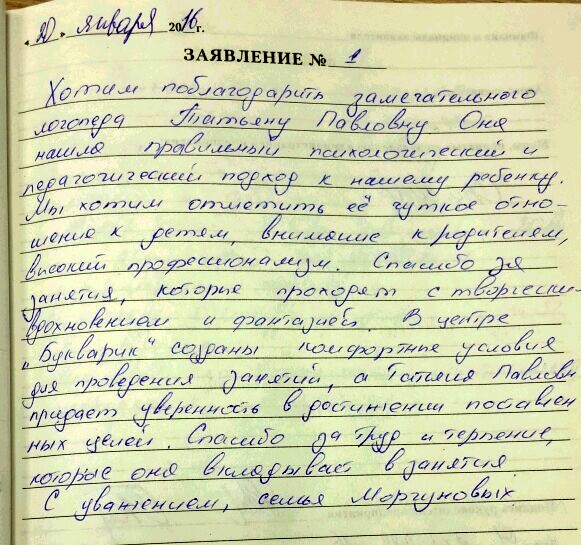 «20» января 2016 г.
ЗАЯВЛЕНИЕ № 1
Хотим поблагодарить замечательного
логопеда Татьяну Павловну Она
нашла правильный психологический и
педагогический подход к нашему ребенку.
Мы хотим отметить её чуткое отно-
шение к детям, внимание к родителям,
высокий профессионализм. Спасибо за
занятия, которые проходят с творчески-
вдохновением и фантазией. В центре
"Букварик" созданы комфортные условия
для проведения занятий, а Татьяна Павловн
придает уверенность в достижении поставлен
ных целей. Спасибо за труд и терпение,
которые она вкладывает в занятия
С уважением, семья Моргуновых